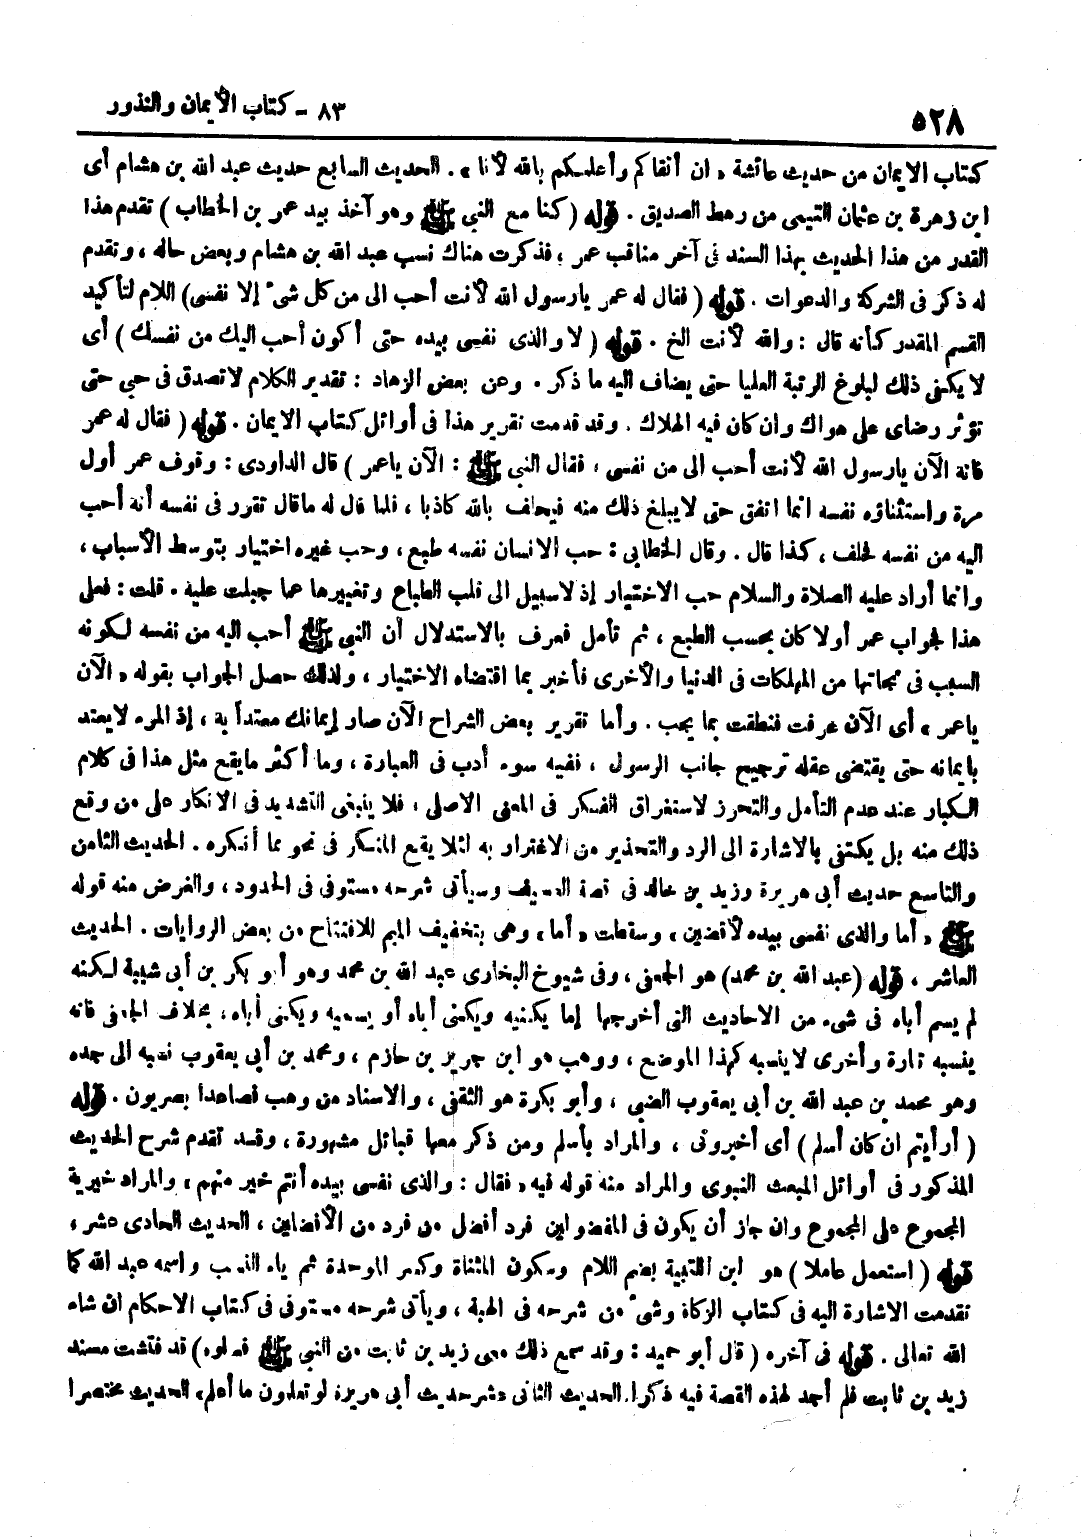 ٥٢٨
٨٣ - كتاب الأيمان والنذور
كتاب الايمان من حديث عائشة « ان أتقاكم وأعلمكم بالله لأنا » . الحديث السابع حديث عبد الله بن هشام أى
ابن زهرة بن عثمان التيمى من رهط الصديق . قوله ( كنا مع النبي ﷺ وهو آخذ بيد عمر بن الخطاب ) تقدم هذا
القدر من هذا الحديث بهذا السند فى آخر مناقب عمر ، فذكرت هناك نسب عبد الله بن هشام وبعض حاله ، وتقدم
له ذكر فى الشركة والدعوات . قوله ( فقال له عمر يارسول الله لأنت أحب الى من كل شىء إلا نفسى ) اللام لتأكيد
القسم المقدر كأنه قال : والله لأنت الخ . قوله ( لا والذى نفسى بيده حتى أكون أحب اليك من نفسك ) أى
لا يكفى ذلك لبلوغ الرتبة العليا حتى يضاف اليه ما ذكر . وعن بعض الزهاد : تقدير الكلام لا تصدق فى حبي حتى
تؤثر رضاى على هواك وان كان فيه الهلاك . وقد قدمت تقرير هذا فى أوائل كتاب الايمان . قوله ( فقال له عمر
فانه الآن يارسول الله لأنت أحب الى من نفسى ، فقال النبي ﷺ : الآن ياعمر ) قال الداودى : وقوف عمر أول
مرة واستثناؤه نفسه انما اتفق حتى لا يبلغ ذلك منه فيحلف بالله كاذبا ، فلما قال له ماقال تقرر فى نفسه أنه أحب
اليه من نفسه لحلف ، كذا قال . وقال الخطابى : حب الانسان نفسه طبع ، وحب غيره اختيار بتوسط الأسباب ،
وانما أراد عليه الصلاة والسلام حب الاختيار إذ لا سبيل الى قلب الطباع وتغييرها عما جبلت عليه . قلت : فعلى
هذا لجواب عمر أولا كان بحسب الطبع ، ثم تأمل فعرف بالاستدلال أن النبي ﷺ أحب اليه من نفسه لكونه
السبب فى نجاتها من المهلكات فى الدنيا والأخرى فأخبر بما اقتضاه الاختيار ، ولذلك حصل الجواب بقوله « الآن
ياعمر » أى الآن عرفت فنطقت بما يجب . وأما تقرير بعض الشراح الآن صار إيمانك معتدا به ، إذ المرء لا يعتد
بايمانه حتى يقتضى عقله ترجيح جانب الرسول ، ففيه سوء أدب فى العبارة ، وما أكثر مايقع مثل هذا فى كلام
الكبار عند عدم التأمل والتحرز لاستغراق الفكر فى المعنى الاصلى ، فلا ينبغى التشديد فى الانكار على من وقع
ذلك منه بل يكتفى بالاشارة الى الرد والتحذير من الاغترار به لئلا يقع المنكر فى نحو مما أنكره . الحديث الثامن
والتاسع حديث أبى هريرة وزيد بن خالد فى قصة العسيف وسيأتى شرحه مستوفى فى الحدود ، والغرض منه قوله
ﷺ « أما والذى نفسى بيده لأقضين » وسقطت « أما » وهى بتخفيف الميم للافتتاح من بعض الروايات . الحديث
العاشر ، قوله ( عبد الله بن محمد ) هو الجعفى ، وفى شيوخ البخارى عبد الله بن محمد وهو أبو بكر بن أبى شيبة لكنه
لم يسم أباه فى شىء من الاحاديث التى أخرجها إما يكنيه ويكنى أباه أو يسميه ويكنى أباه ، بخلاف الجعفى فانه
ينسبه تارة وأخرى لا ينسبه كهذا الموضع ، ووهب هو ابن جرير بن حازم ، ومحمد بن أبى يعقوب نسبه الى جده
وهو محمد بن عبد الله بن أبى يعقوب الضبى ، وأبو بكرة هو الثقفى ، والاسناد من وهب فصاعدا بصريون . قوله
( أرأيتم ان كان أسلم ) أى أخبرونى ، والمراد بأسلم ومن ذكر معها قبائل مشهورة ، وقد تقدم شرح الحديث
المذكور فى أوائل المبعث النبوى والمراد منه قوله فيه « فقال : والذى نفسى بيده أنتم خير منهم » والمراد خيرية
المجموع على المجموع وان جاز أن يكون فى المفضولين فرد أفضل من فرد من الأفضلين ، الحديث الحادى عشر ،
قوله ( استعمل عاملا ) هو ابن اللتبية بضم اللام وسكون المثناة وكسر الموحدة ثم ياء النسب واسمه عبد الله كما
تقدمت الاشارة اليه فى كتاب الزكاة وشىء من شرحه فى الهبة ، ويأتى شرحه مستوفى فى كتاب الاحكام ان شاء
الله تعالى . قوله فى آخره ( قال أبو حميد : وقد سمع ذلك معى زيد بن ثابت من النبي ﷺ فسلوه ) قد فتشت مسند
زيد بن ثابت فلم أجد لهذه القصة فيه ذكرا. الحديث الثانى عشر حديث أبى هريرة لو تعلمون ما أعلم، الحديث مختصرا